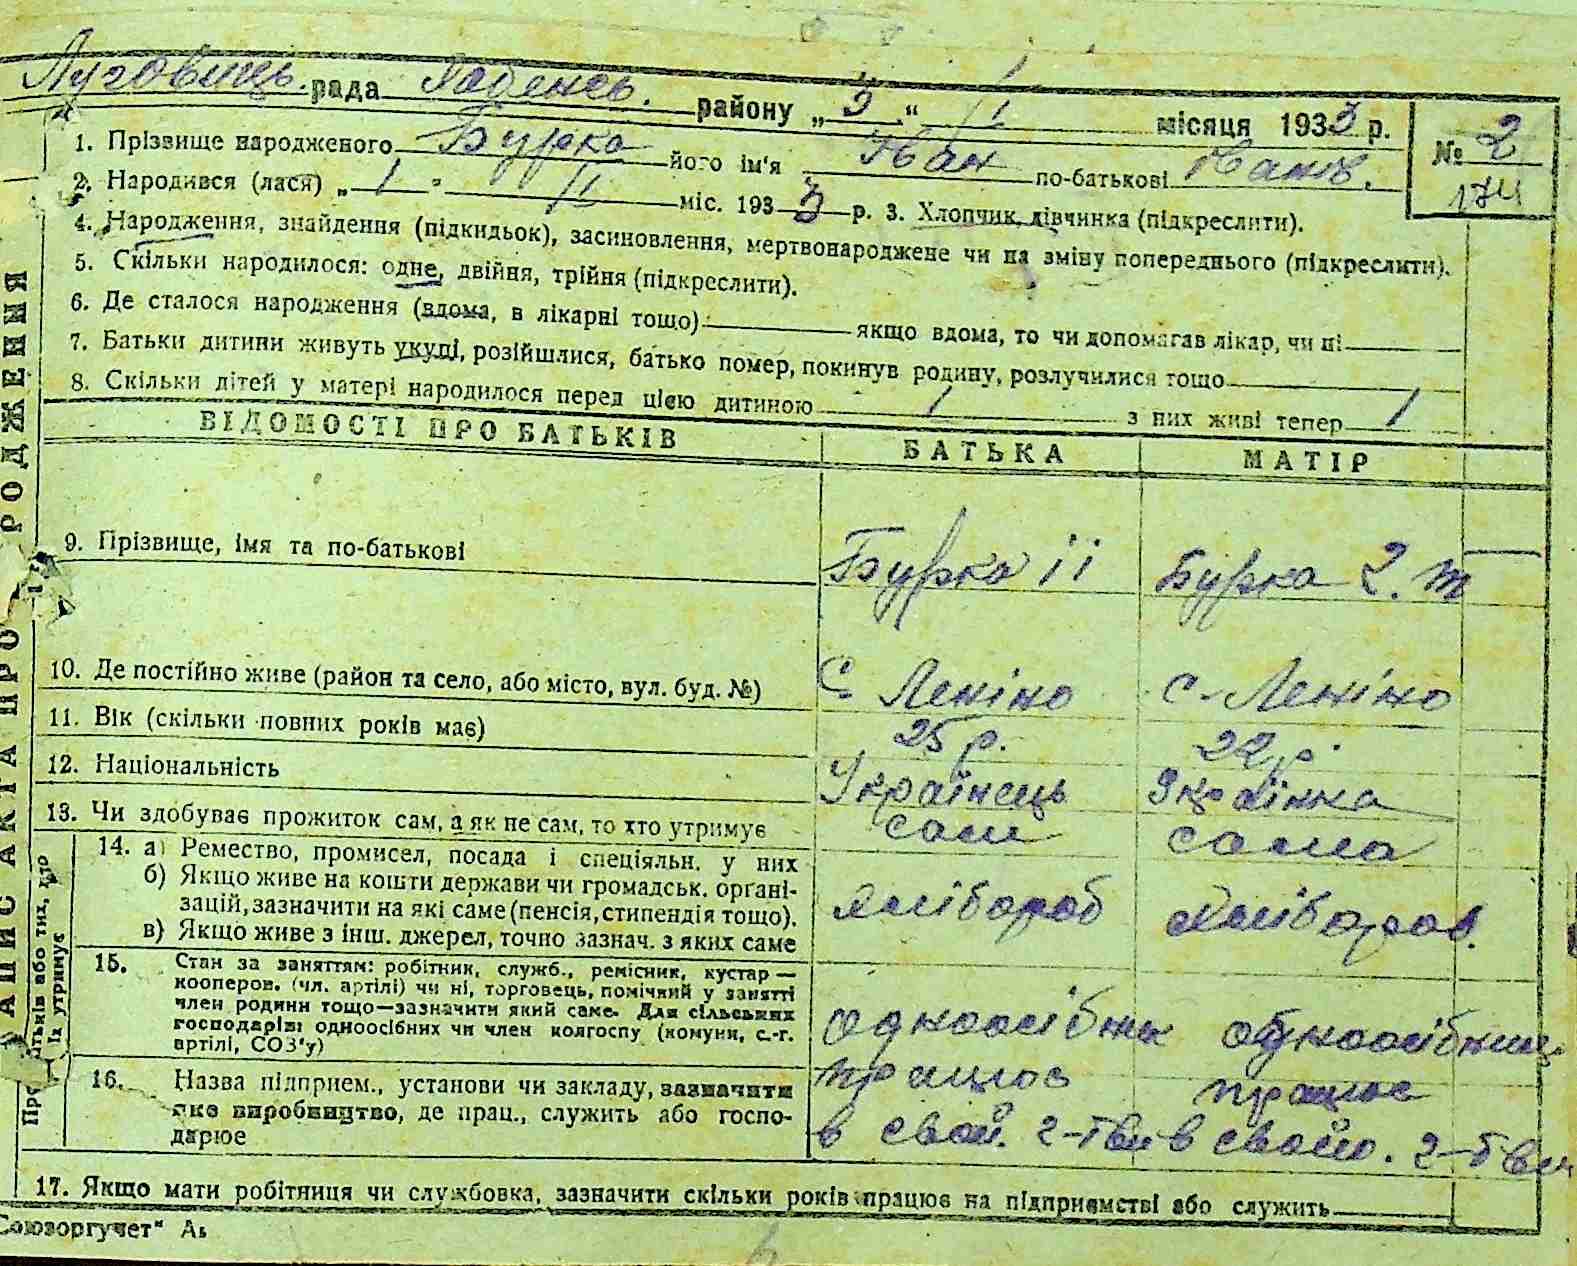 рада района „3“ I місяця 1933 р.
№ 2
174
1. Прізвище народженого Бурка його ім'я Іван по-батькові Іванов.
2. Народився (лася) „ 1 " II міс. 1933 р. 3. Хлопчик, дівчинка (підкреслити).
4. Народження, знайдення (підкидьок), засиновлення, мертвонароджене чи на зміну попереднього (підкреслити).
5. Скільки народилося: одне, двійня, трійня (підкреслити).
6. Де сталося народження (вдома, в лікарні тощо) якщо вдома, то чи допомагав лікар, чи ні
7. Батьки дитини живуть укупі, розійшлися, батько помер, покинув родину, розлучилися тощо
8. Скільки дітей у матері народилося перед цією дитиною 1 з них живі тепер 1
ВІДОМОСТІ ПРО БАТЬКІВ БАТЬКА МАТІР
9. Прізвище, імя та по-батькові Бурка іі Бурка
10. Де постійно живе (район та село, або місто, вул. буд. №) С Леніно с. Леніно
11. Вік (скільки повних років має) 25 р. 22 р.
12. Національність Українець Українка
13. Чи здобуває прожиток сам, а як не сам, то хто утримує сам сама
14. а) Ремество, промисел, посада і спеціяльн. у них
б) Якщо живе на кошти держави чи громадськ. органі-
зацій, зазначити на які саме (пенсія, стипендія тощо). хлібороб хлібороб.
в) Якщо живе з інш. джерел, точно зазнач. з яких саме
15. Стан за заняттям: робітник, служб., ремісник, кустар —
кооперов. (чл. артілі) чи ні, торговець, помічний у занятті
член родини тощо—зазначити який саме. Для сільських
господарів: одноосібних чи член колгоспу (комуни, с.-г. одноосібник
артілі, СОЗ'у)
16. Назва підприєм., установи чи закладу, зазначити працює працює
яке виробництво, де прац., служить або госпо- в свой. г-тві в свойо. г-тві
дарює
17. Якщо мати робітниця чи службовка, зазначити скільки років працює на підприємстві або служить
Союзоргучет"
ЗАПИС АКТА ПРО РОДЖЕННЯ
Їх утримує